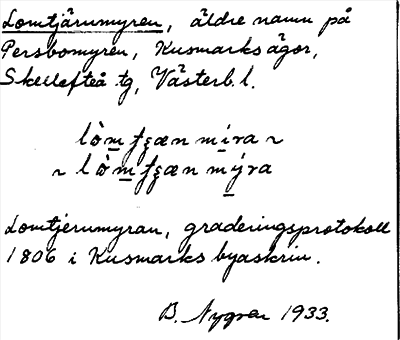 Lomtjärnmyren, äldre namn på
Persbomyren, Kusmarks ägor,
Skellefteå tg, Västerb. l.
Lomtjernmyran, graderingsprotokoll
1806 i Kusmarks byaskrin.
B. 1933.